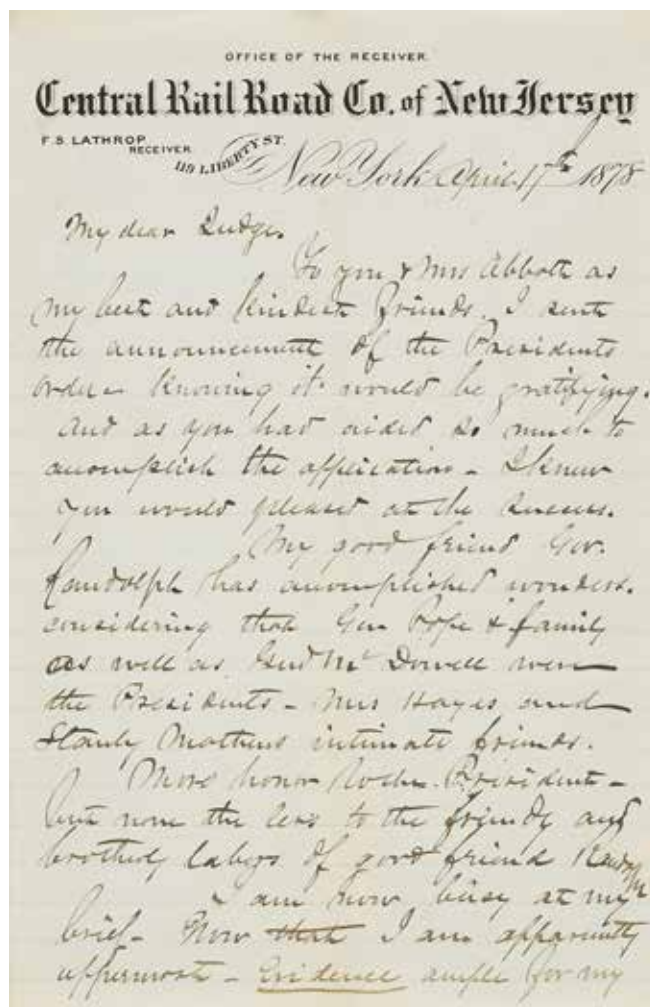 OFFICE OF THE RECEIVER.
Central Rail Road Co. of New Jersey
F. S. LATHROP
RECEIVER
119 LIBERTY ST.
New York April 17th 1878
My dear Judge.
To you & Mrs Abbott as
my best and kindest friends. I sent
the announcement of the Presidents
order - knowing it would be gratifying.
and as you had aided so much to
accomplish the application - I knew
you would pleased at the success.
My good friend Gov.
Randolph has accomplished wonders.
considering that Gen Pope & family
as well as Genl McDowell were
the Presidents - Mrs Hayes and
Stanly Mathews intimate friends.
More honor to the President -
but none the less to the friendly and
brotherly labors of good friend Randolph
I am now busy at my
brief - Now that I am apparently
uppermost - Evidence ample for my